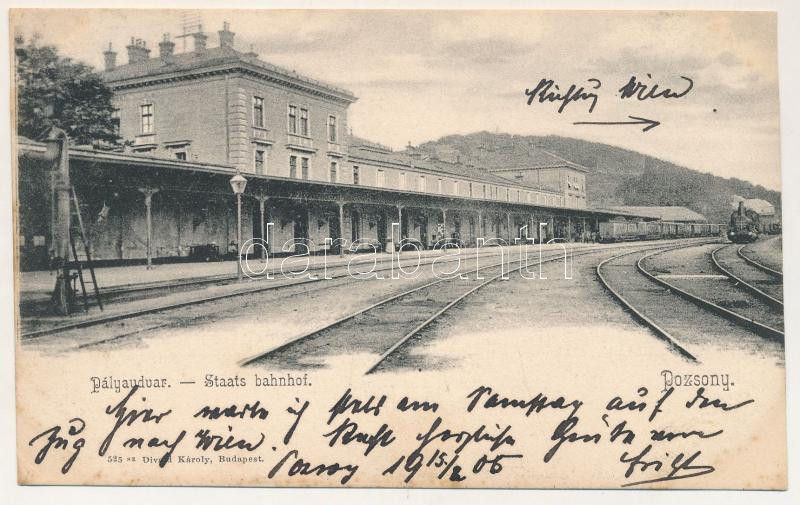 Richtung Wien
darabanth.com
Pályaudvar. — Staats bahnhof. Pozsony.
Hier warte ich stets am Samstag auf den
Zug nach Wien. herzliche Grüße von
525 sz Divald Károly, Budapest.
19 15/2 06 Fritz